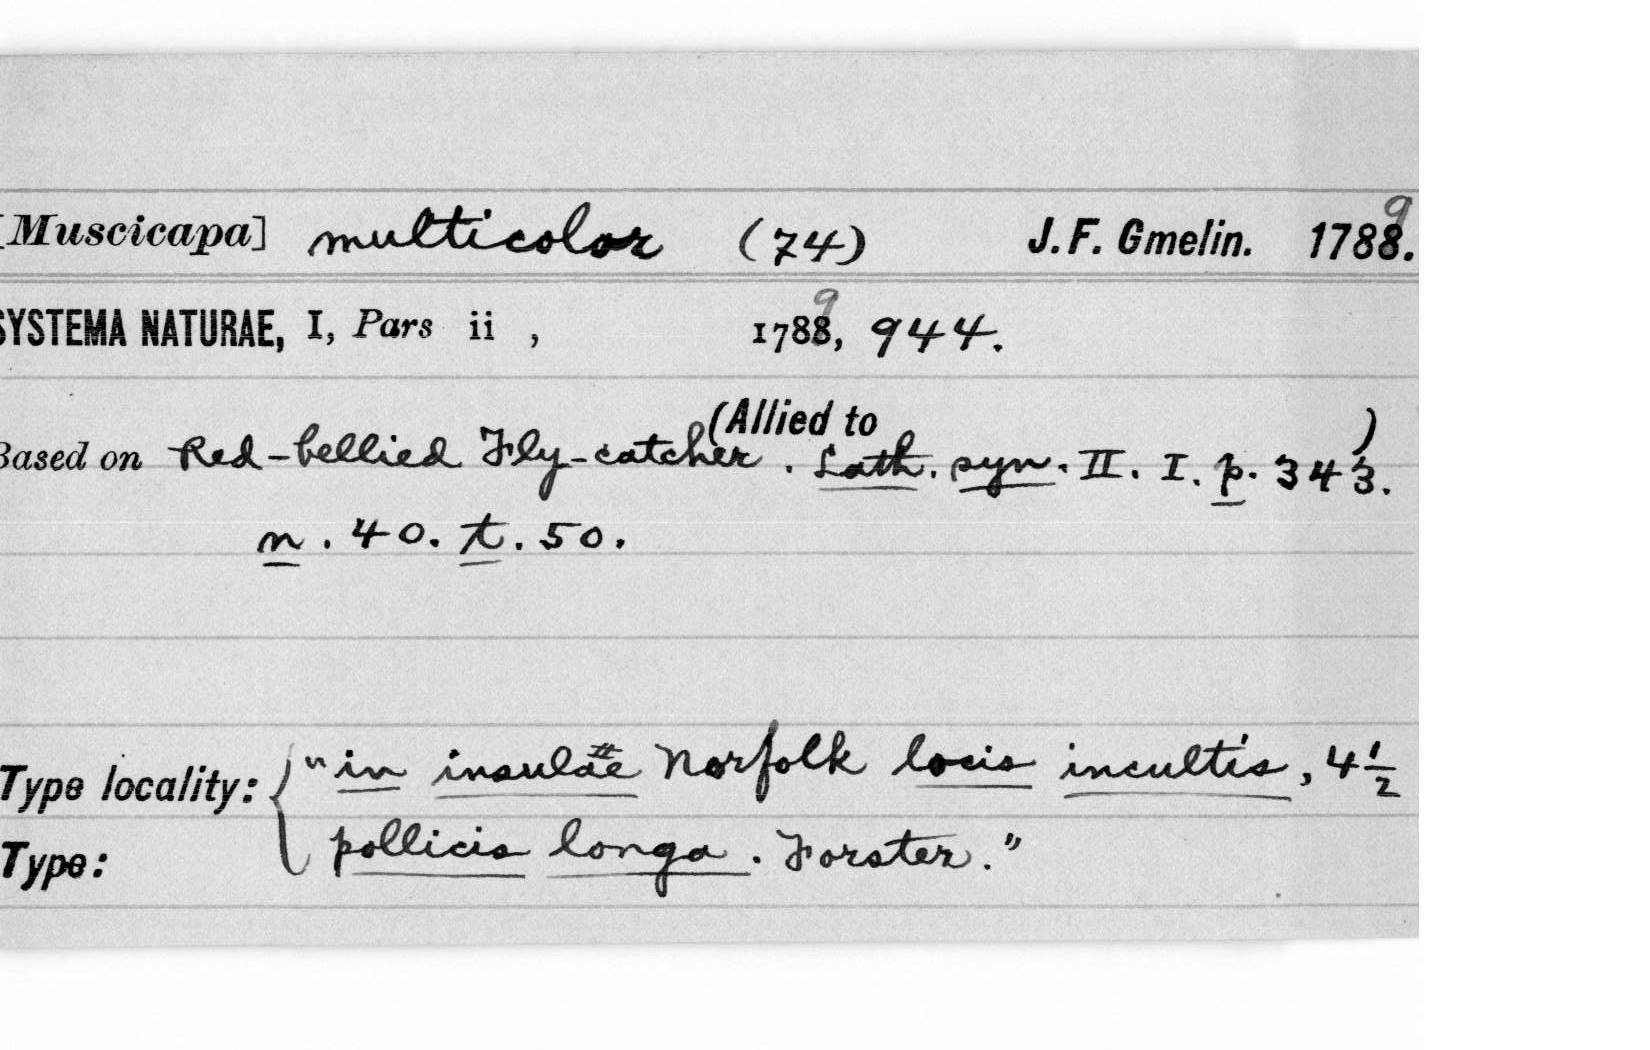 [Muscicapa] multicolor (74) J. F. Gmelin. 1788. 9
SYSTEMA NATURAE, I, Pars ii , 1788, 9 944.
(Allied to )
Based on Red-bellied Fly-catcher. Lath. syn. II. I. p. 343.
n. 40. t. 50.
Type locality: "in insulae Norfolk locis incultis, 4 1/2
Type: pollicis longa. Forster."